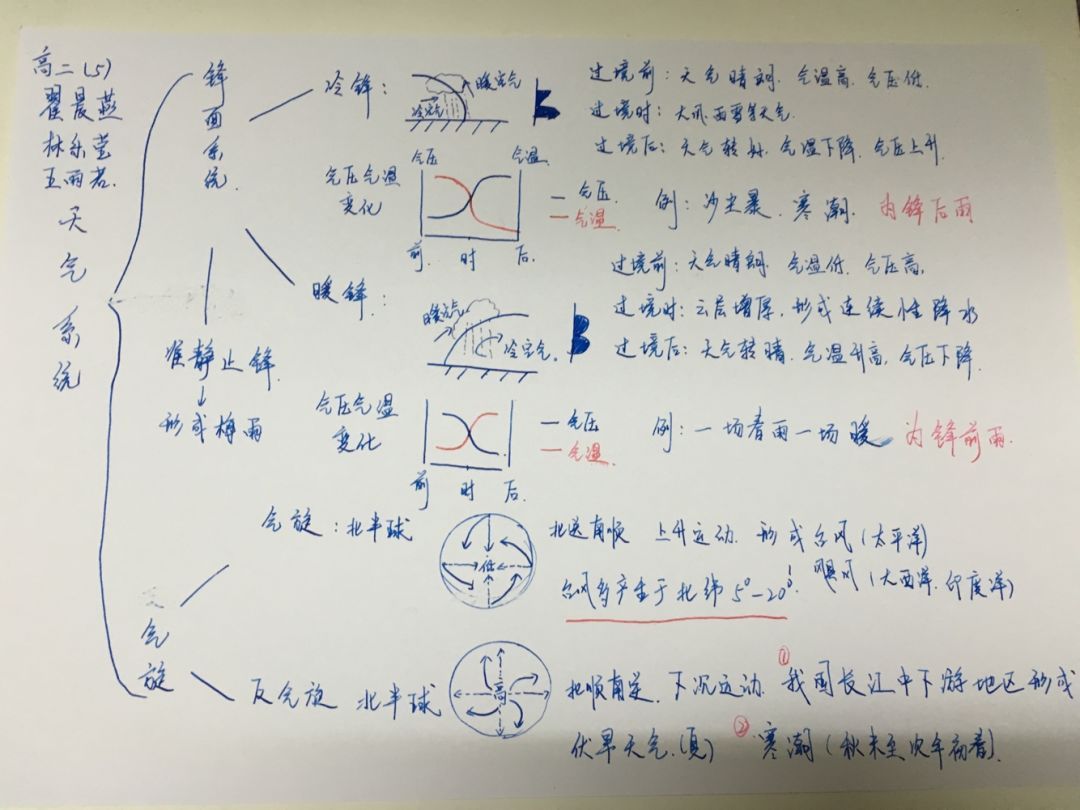 高二(5)
翟晨燕
林乐莹
王雨若.
天气系统
锋面系统
冷锋：
暖空气
冷空气
过境前：天气晴朗. 气温高. 气压低.
过境时：大风.雨雪等天气.
过境后：天气转好. 气温下降. 气压上升.
气压气温
变化
气压
气温
前. 时 后.
气压.
气温.
例：沙尘暴. 寒潮. 为锋后雨
暖锋：
暖空气
冷空气.
过境前：天气晴朗. 气温低. 气压高.
过境时：云层增厚. 形成连续性降水
过境后：天气转晴. 气温升高. 气压下降.
准静止锋.
形成梅雨
气压气温
变化
前 时 后.
气压
气温.
例：一场春雨一场暖 为锋前雨.
气旋
气旋：北半球
低
北逆南顺 上升运动. 形成台风(太平洋)
飓风(大西洋. 印度洋)
台风多产生于北纬5°—20°
反气旋 北半球
高
北顺南逆. 下沉运动. ①我国长江中下游地区形成
伏旱天气.(夏) ②寒潮(秋末至次年初春).